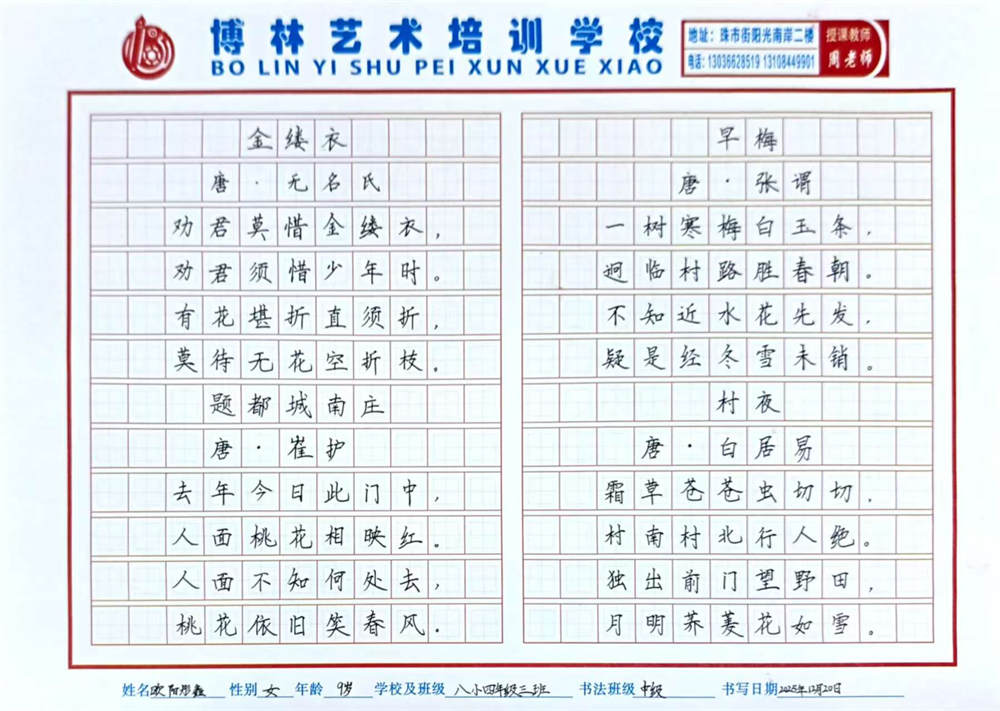 博林艺术培训学校
BO LIN YI SHU PEI XUN XUE XIAO
地址：珠市街阳光南岸二楼
电话：13036628519 13108449901
授课教师
周老师
金缕衣
唐·无名氏
劝君莫惜金缕衣，
劝君须惜少年时。
有花堪折直须折，
莫待无花空折枝。
题都城南庄
唐·崔护
去年今日此门中，
人面桃花相映红。
人面不知何处去，
桃花依旧笑春风.
早梅
唐·张谓
一树寒梅白玉条，
迥临村路胜春朝。
不知近水花先发，
疑是经冬雪未销。
村夜
唐·白居易
霜草苍苍虫切切，
村南村北行人绝。
独出前门望野田，
月明荞菱花如雪。
姓名欧阳 性别女 年龄9岁 学校及班级八小四年级三班 书法班级中级 书写日期2025年12月20日